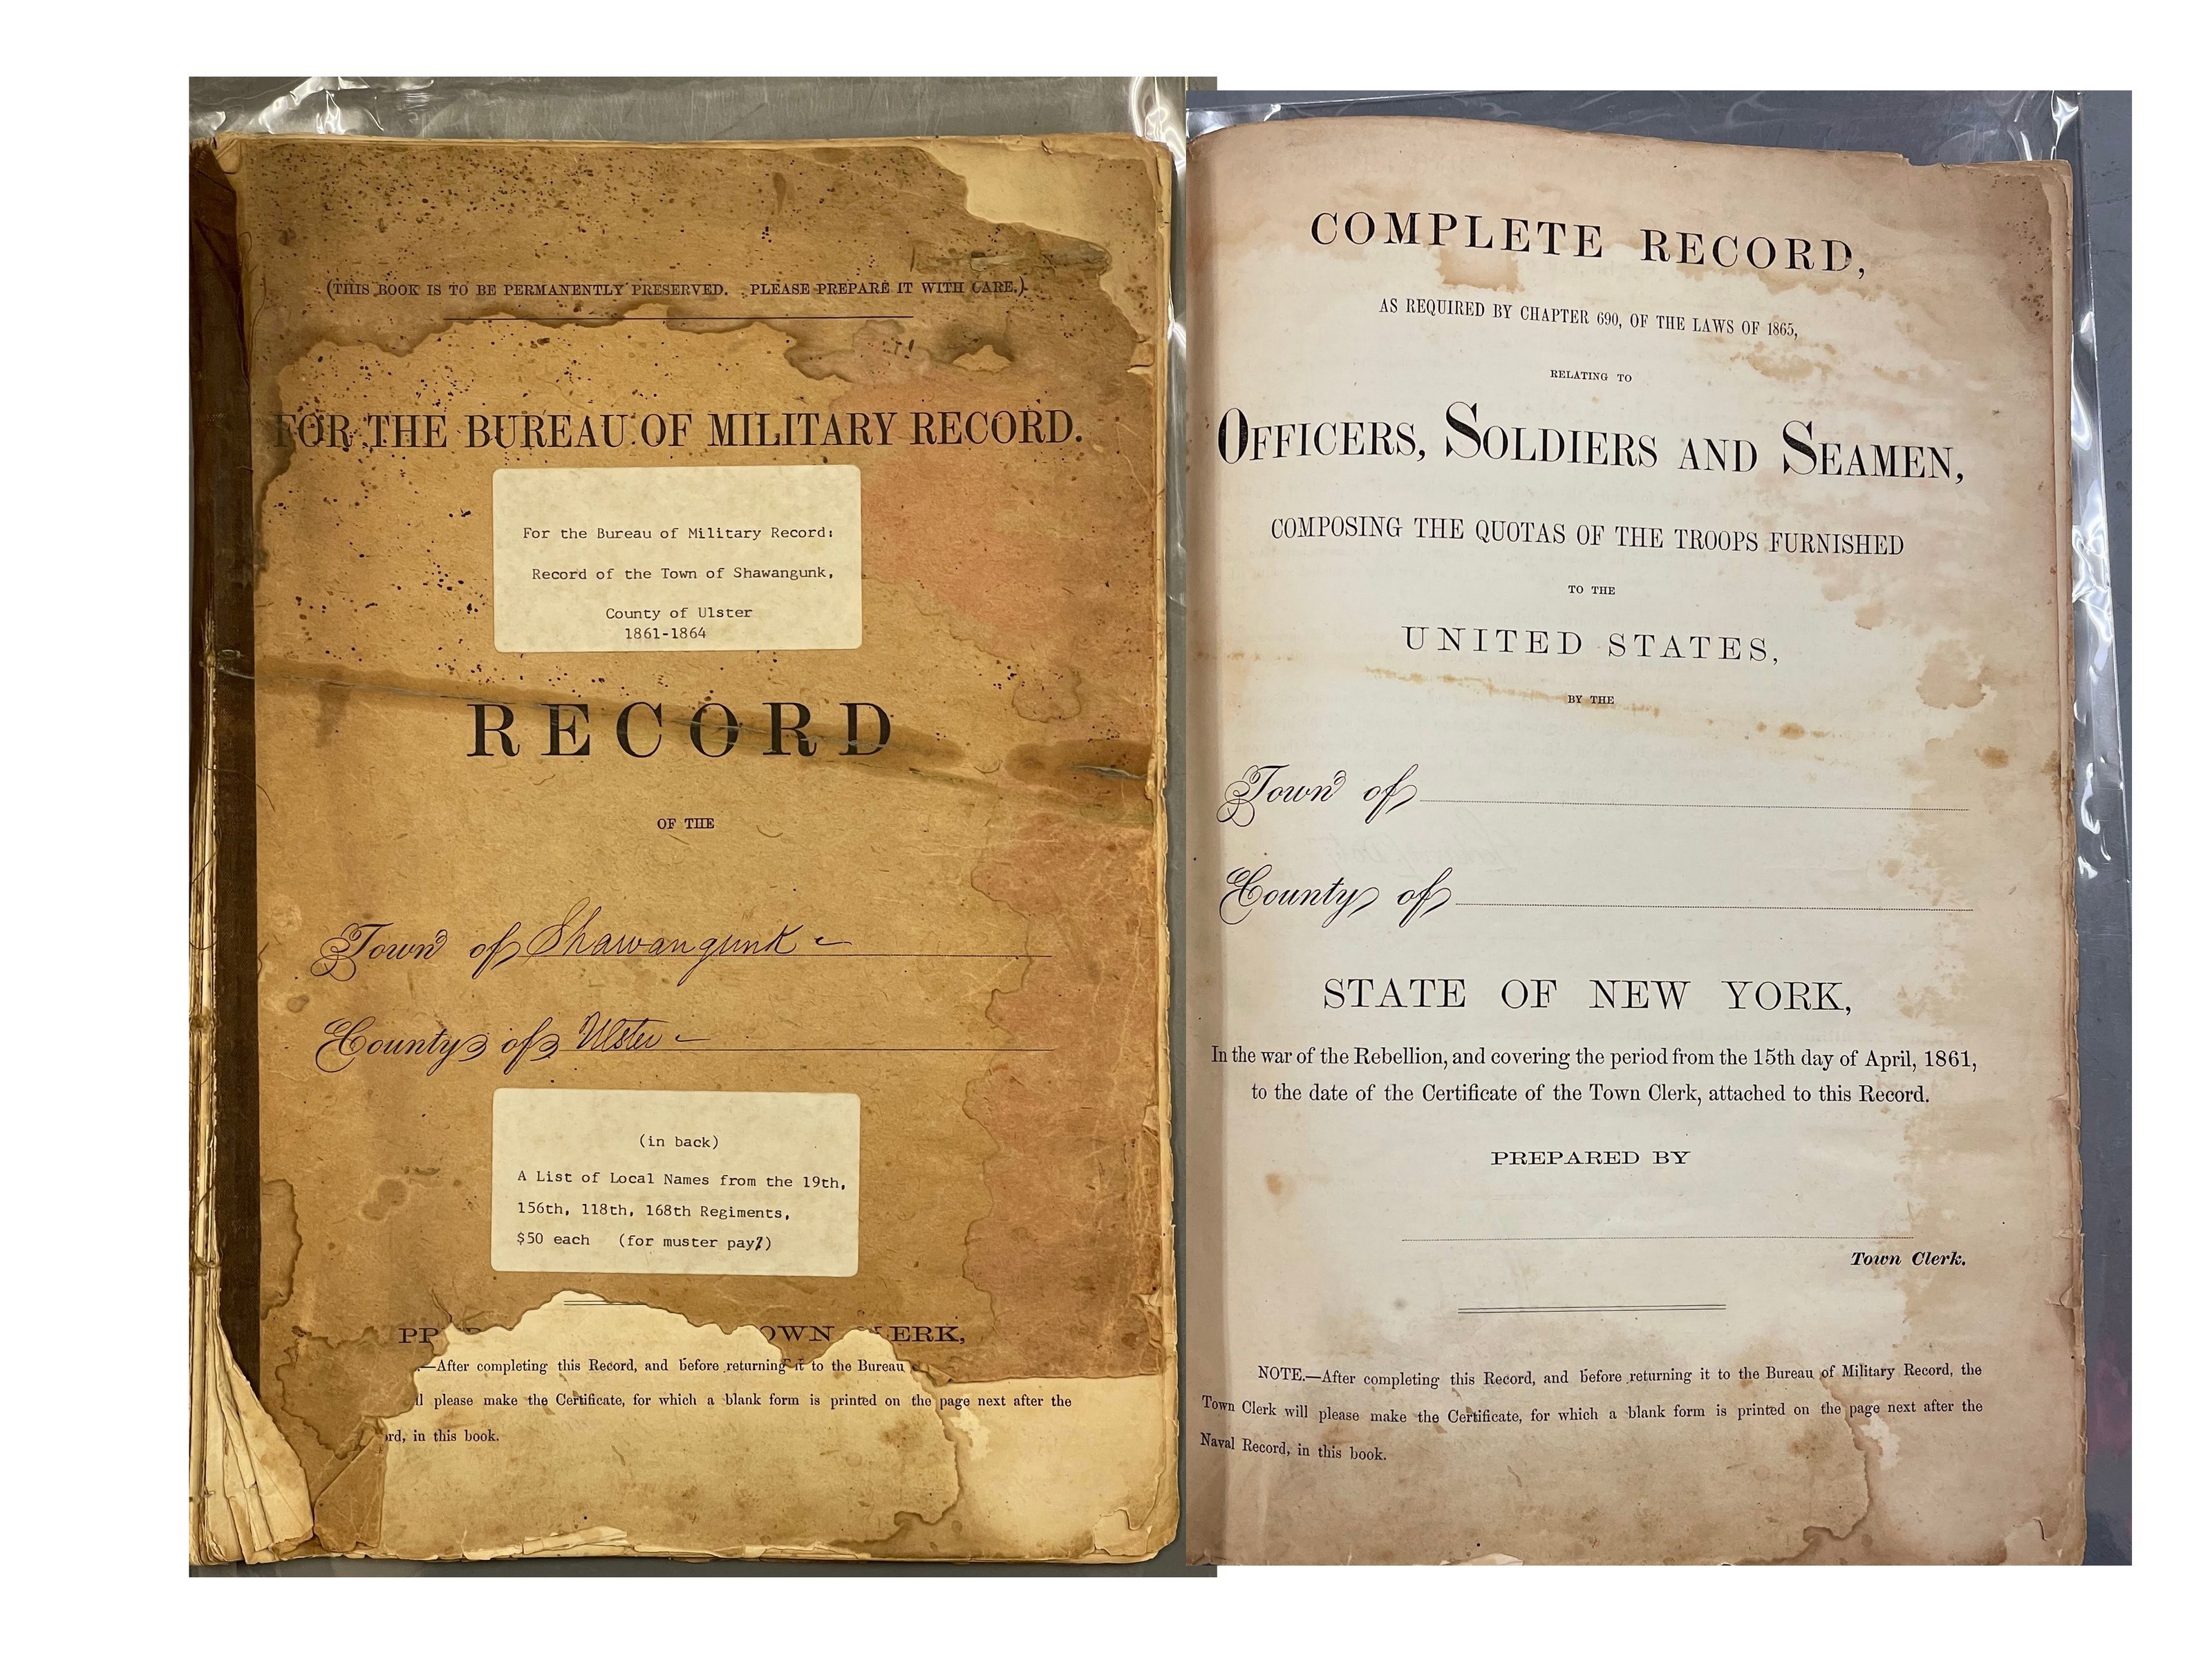 (THIS BOOK IS TO BE PERMANENTLY PRESERVED. PLEASE PREPARE IT WITH CARE.)
FOR THE BUREAU OF MILITARY RECORD.
For the Bureau of Military Record:
Record of the Town of Shawangunk,
County of Ulster
1861-1864
RECORD
OF THE
Town of Shawangunk
County of Ulster
(in back)
A List of Local Names from the 19th,
156th, 118th, 168th Regiments,
$50 each (for muster pay?)
OWN CLERK,
—After completing this Record, and before returning it to the Bureau
please make the Certificate, for which a blank form is printed on the page next after the
in this book.
COMPLETE RECORD,
AS REQUIRED BY CHAPTER 690, OF THE LAWS OF 1865,
RELATING TO
OFFICERS, SOLDIERS AND SEAMEN,
COMPOSING THE QUOTAS OF THE TROOPS FURNISHED
TO THE
UNITED STATES,
BY THE
Town of
County of
STATE OF NEW YORK,
In the war of the Rebellion, and covering the period from the 15th day of April, 1861,
to the date of the Certificate of the Town Clerk, attached to this Record.
PREPARED BY
Town Clerk.
NOTE.—After completing this Record, and before returning it to the Bureau of Military Record, the
Town Clerk will please make the Certificate, for which a blank form is printed on the page next after the
Naval Record, in this book.